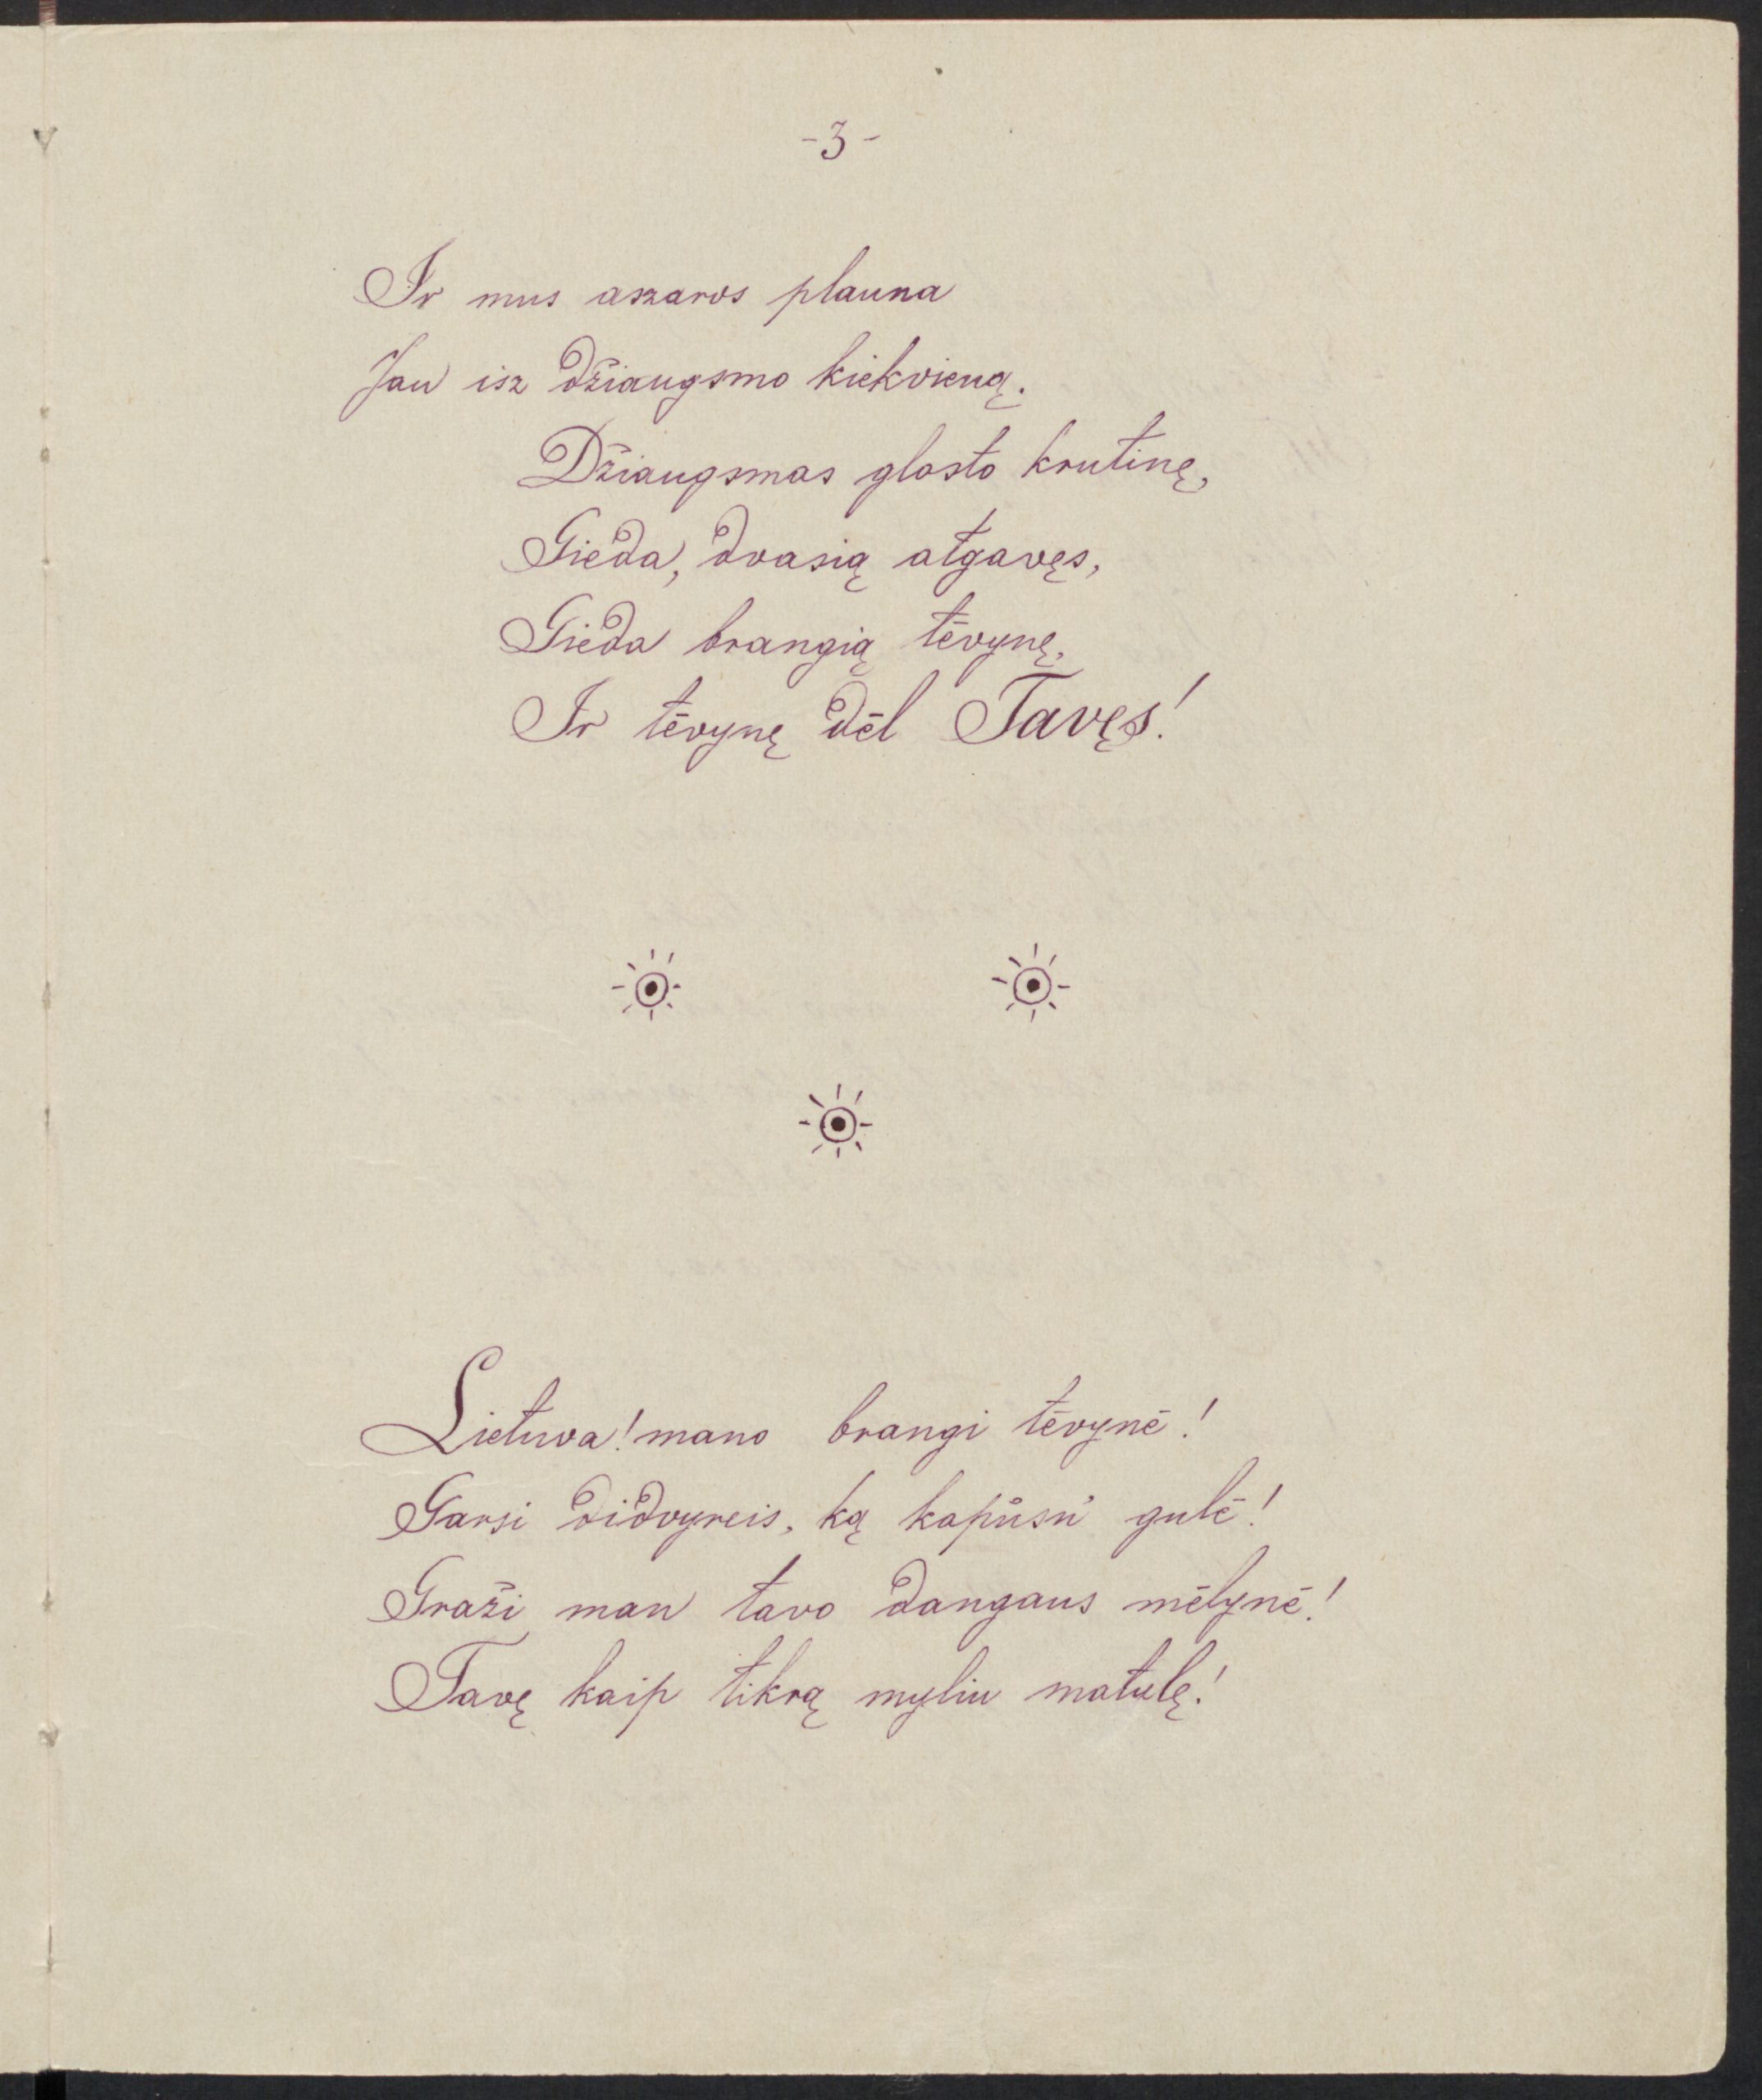 -3-
Ir mus aszaros plauna
Jau isz džiaugsmo kiekvieną.
Džiaugsmas glosto krutinę,
Gieda, dvasią atgavęs,
Gieda brangią tėvynę,
Ir tėvynę dėl Tavęs!
Lietuva! mano brangi tėvynė!
Garsi didvyreis, ką kapůsů gulė!
Graži man tavo dangaus mėlynė!
Tavę kaip tikrą myliu matulę!